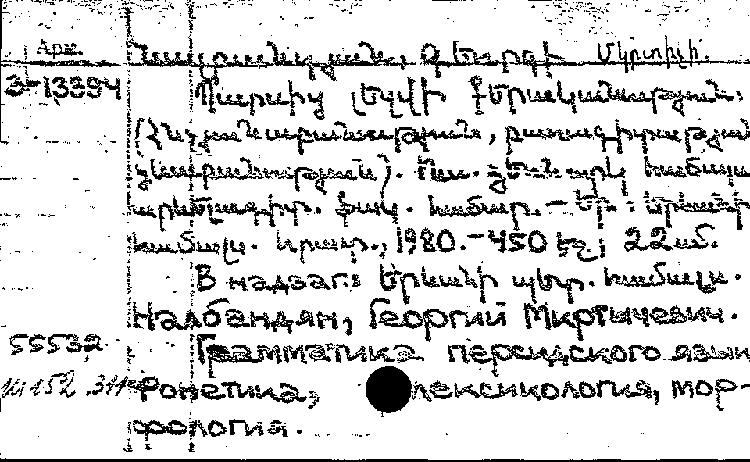 Арм.
Նալբանդյան, Գեորգի Մկրտիչի.
3-13394
Պարսից լեզվի քերականություն:
(Հնչյունաբանություն, բառագիտություն
ձևաբանություն). Ուս. ձեռնարկ համալս
արևելագիտ. ֆակ. համար. — Եր.: Երևանի
համալս. հրատ., 1980. — 450 էջ; 22 սմ.
В надзаг.: Երևանի պետ. համալս.
Налбандян, Георгий Мкртычевич.
55532 Грамматика персидского языка
Фонетика, лексикология, мор-
фология.